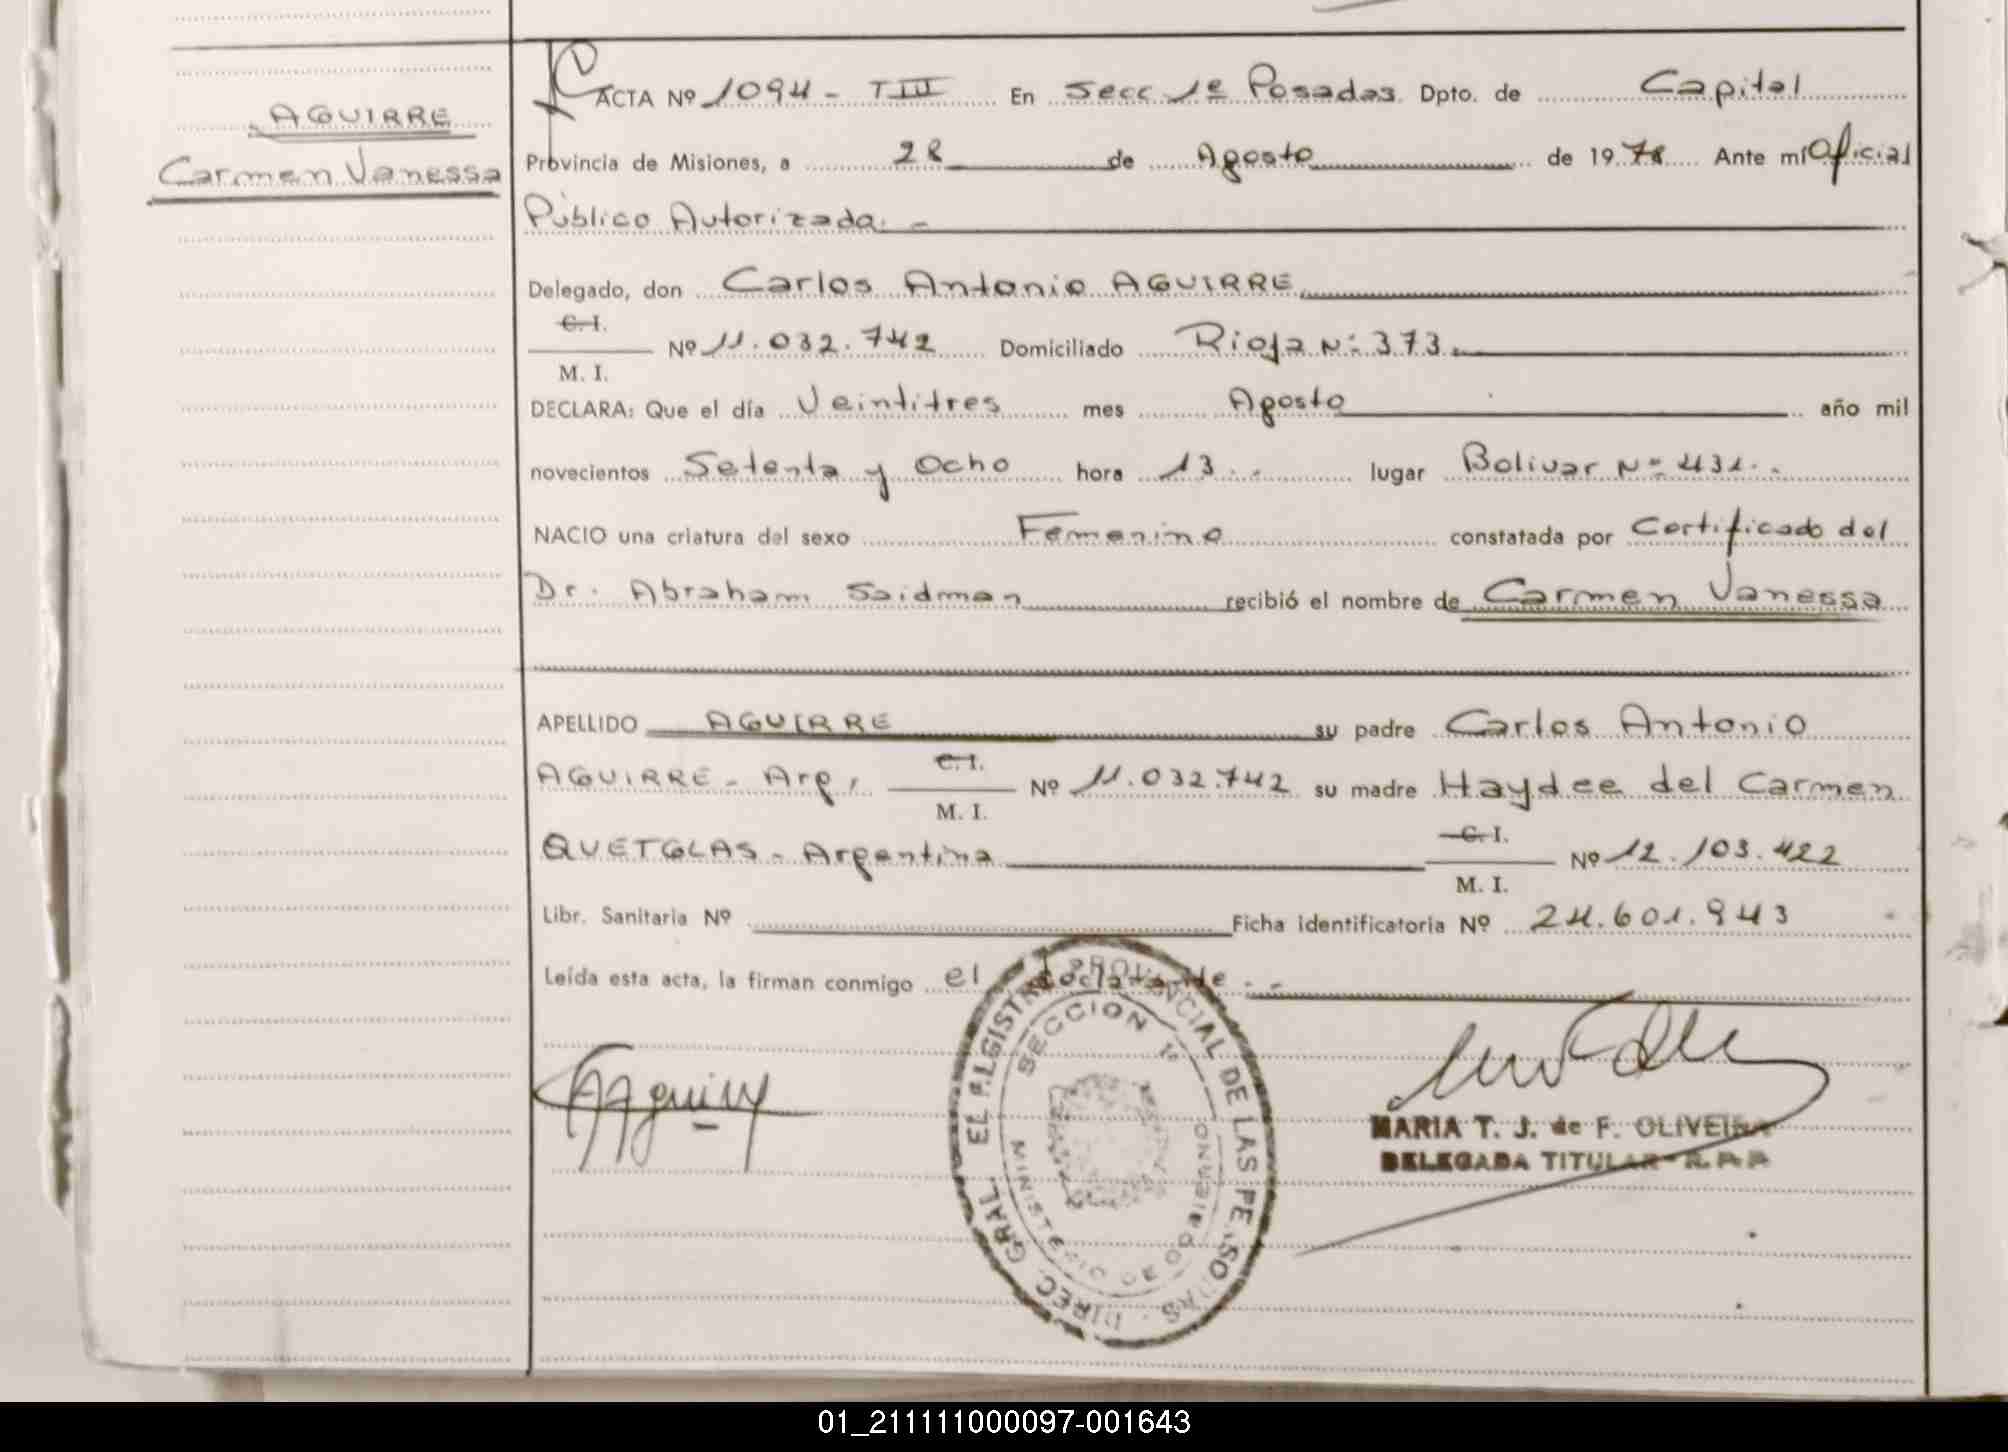 AGUIRRE
Carmen Vanessa
ACTA Nº 1094 - TIII En Secc 1º Posadas Dpto. de Capital
Provincia de Misiones, a 28 de Agosto de 1978 Ante mí Oficial
Público Autorizada. -
Delegado, don Carlos Antonio AGUIRRE
C. I.
Nº 11.032.742 Domiciliado Rioja Nº 373.
M. I.
DECLARA: Que el día Veintitres mes Agosto año mil
novecientos Setenta y Ocho hora 13. . lugar Bolivar Nº 431. .
NACIO una criatura del sexo Femenino constatada por Certificado del
Dr. Abraham Saidman recibió el nombre de Carmen Vanessa
APELLIDO AGUIRRE su padre Carlos Antonio
AGUIRRE - Arg. C. I. Nº 11.032.742 su madre Haydee del Carmen
M. I.
QUETGLAS - Argentina C. I. Nº 12.103.422
M. I.
Libr. Sanitaria Nº Ficha identificatoria Nº 24.601.943
Leída esta acta, la firman conmigo el declarante - -
DIREC. GRAL. EL REGISTRO PROVINCIAL DE LAS PERSONAS
SECCION 1º
MINISTERIO DE GOBIERNO
MARIA T. J. de F. OLIVEIRA
DELEGADA TITULAR - R.P.P.
01_211111000097-001643